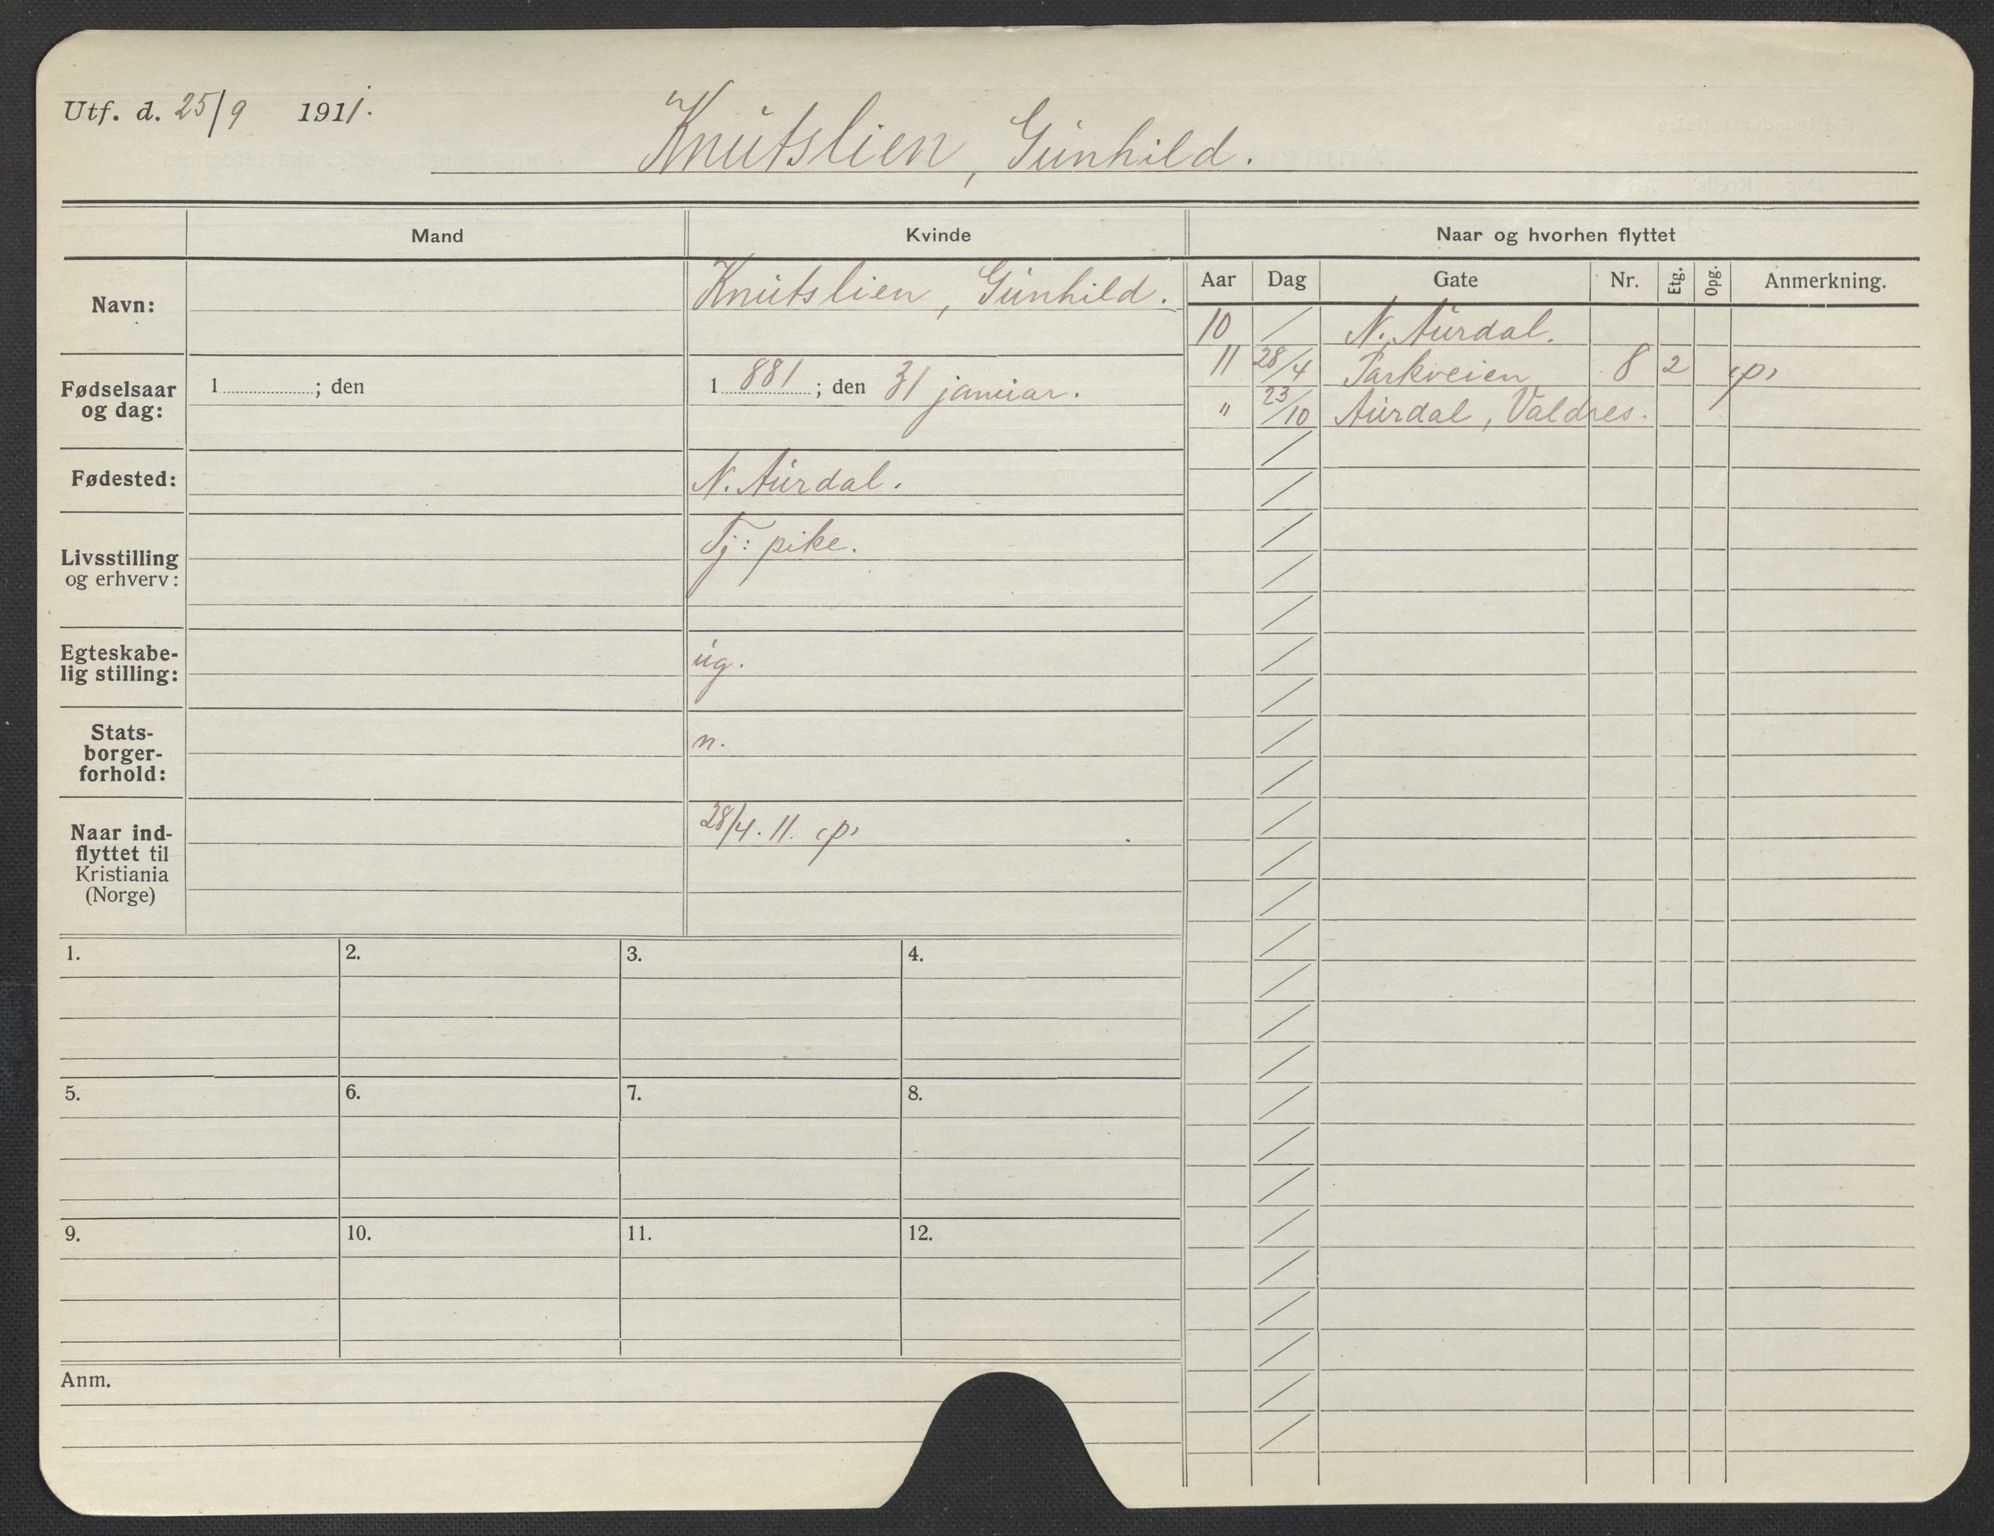 Utf. d. 25/9 1911.
Knutslien, Gunhild.
Mand Kvinde Naar og hvorhen flyttet
Aar Dag Gate Nr. Etg. Opg. Anmerkning.
Navn: Knutslien, Gunhild.
10 / N. Aurdal.
11 28/4 Parkveien 8 2 (p)
" 23/10 Aurdal, Valdres.
Fødselsaar
og dag:
1 ; den
1 881 ; den 31 januar.
Fødested: N. Aurdal.
Livsstilling
og erhverv:
Tj: pike.
Egteskabe-
lig stilling:
ug.
Stats-
borger-
forhold:
n.
Naar ind-
flyttet til
Kristiania
(Norge)
28/4. 11. (p)
1. 2. 3. 4.
5. 6. 7. 8.
9. 10. 11. 12.
Anm.